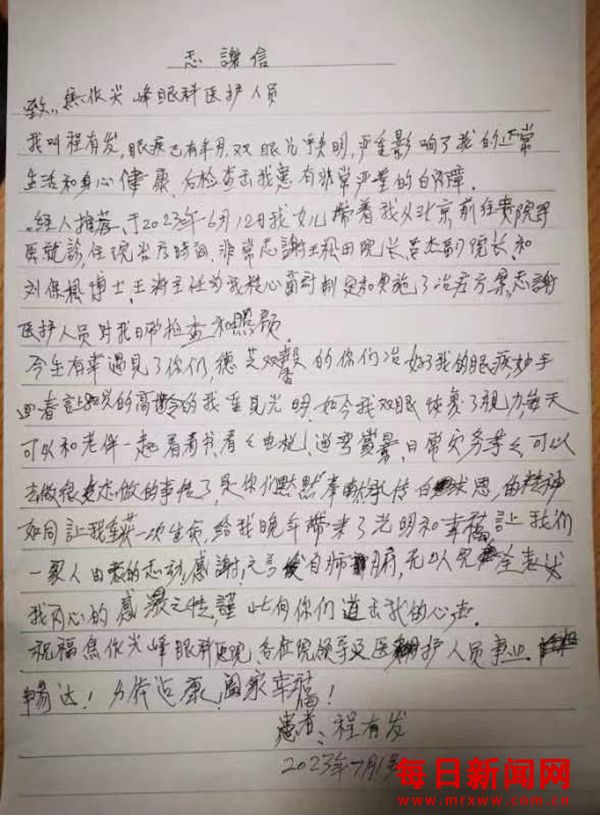 感謝信
致：焦作光峰眼科医护人员
我叫程有发，眼疾已有年月，双眼几乎失明，严重影响了我的正常
生活和身心健康，后检查出我患有非常严重的白内障。
经人推荐，于2023年6月12日我女儿带着我从北京前往贵院
医就診，住院治疗時间，非常感謝王松田院长、杰副院长、和
刘保松博士、王涛主任为我精心制定和实施了治疗方案，感謝
医护人员对我日常检查和照顾。
今生有幸遇见了你们，德艺双馨的你们治好了我的眼疾妙手
回春，让的高龄的我重见光明，如今我双眼恢复了视力，每天
可以和老伴一起看看书，看看电视，逛弯赏景，日常家务等等，可以
去做很多想做的事情了，是你们默默奉献的精神
如同让我重获一次生命，给我晚年带来了光明和幸福，让我们
一家人由衷的感动，感謝之言发自肺腑，无以完全表达
我内心的感激之情，謹此向你们道出我的心声。
祝福焦作光峰眼科医院，各位院领导及医护人员事业
畅达！身体健康，阖家幸福！
患者：程有发
2023年7月1号
每日新闻网
www.mrxww.com.cn